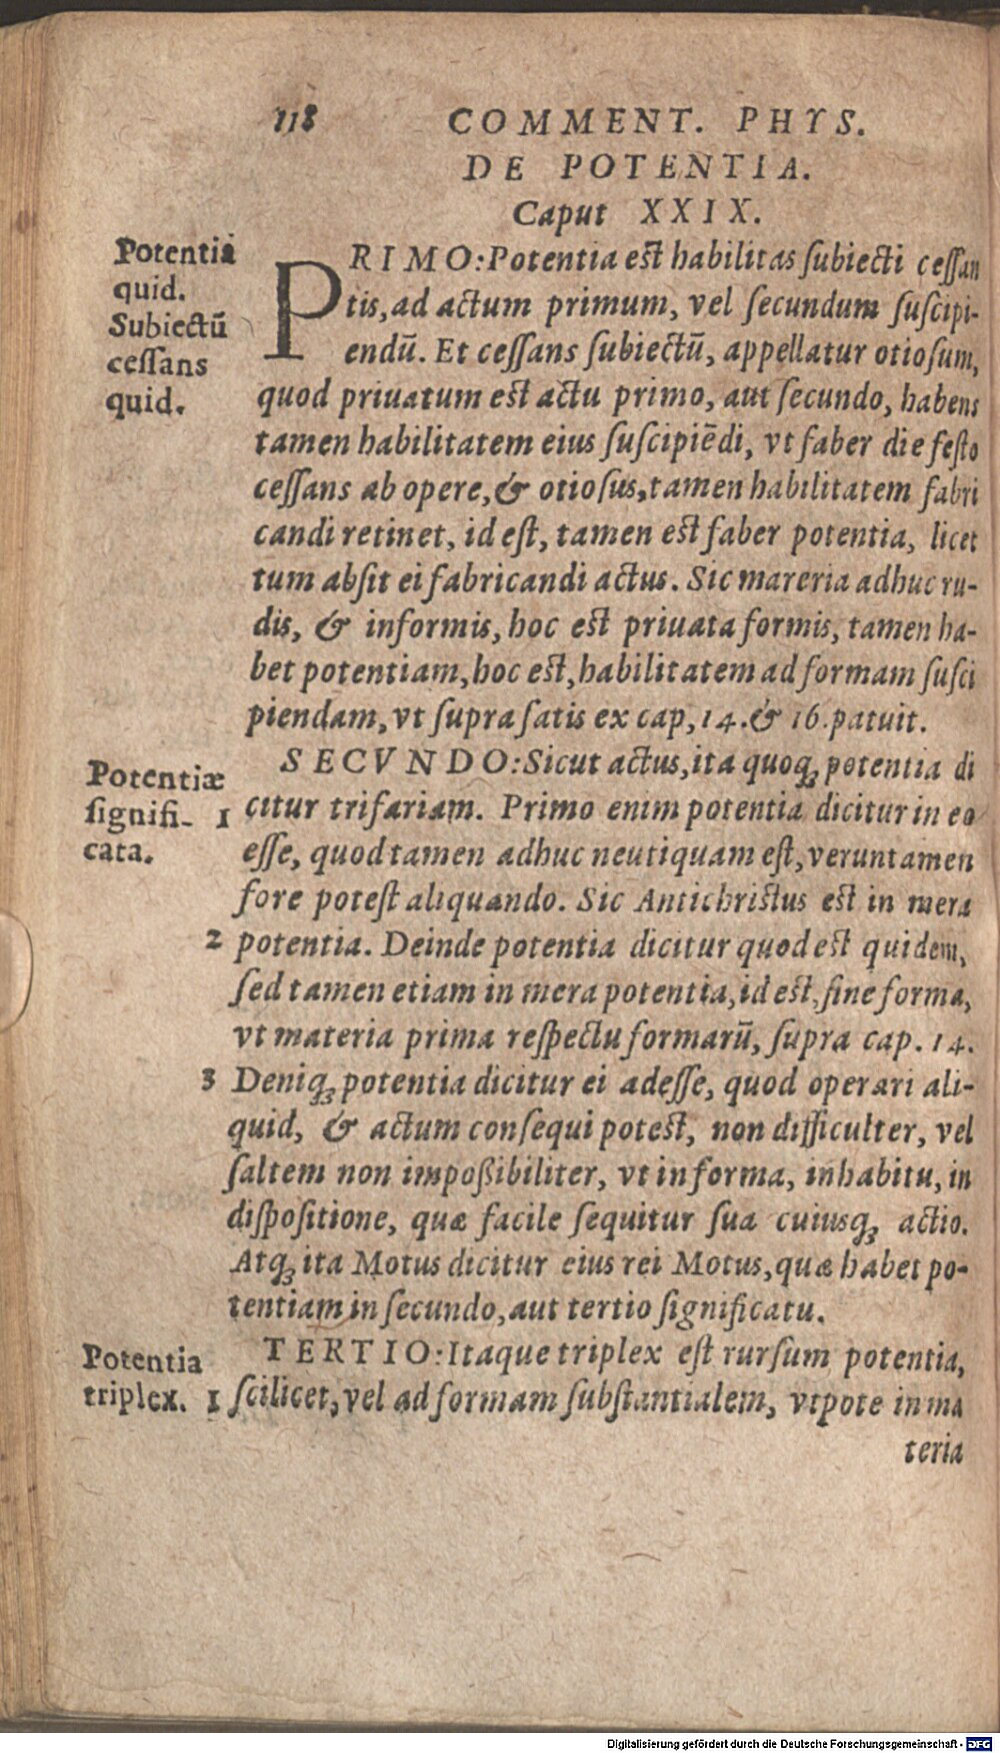 118 COMMENT. PHYS.
DE POTENTIA.
Caput XXIX.
Potentia
quid.
Subiectū
cessans
quid.
PRIMO: Potentia est habilitas subiecti cessan
tis, ad actum primum, vel secundum suscipi-
endū. Et cessans subiectū, appellatur otiosum,
quod priuatum est actu primo, aut secundo, habens
tamen habilitatem eius suscipiēdi, vt faber die festo
cessans ab opere, & otiosus, tamen habilitatem fabri
candi retinet, id est, tamen est faber potentia, licet
tum absit ei fabricandi actus. Sic mareria adhuc ru-
dis, & informis, hoc est priuata formis, tamen ha-
bet potentiam, hoc est, habilitatem ad formam susci
piendam, vt supra satis ex cap, 14. & 16. patuit.
Potentiæ
signifi-
cata.
SECVNDO: Sicut actus, ita quoqꝫ potentia di
1 citur trifariam. Primo enim potentia dicitur in eo
esse, quod tamen adhuc neutiquam est, veruntamen
fore potest aliquando. Sic Antichristus est in mera
2 potentia. Deinde potentia dicitur quod est quidem,
sed tamen etiam in mera potentia, id est, sine forma,
vt materia prima respectu formarū, supra cap. 14.
3 Deniqꝫ potentia dicitur ei adesse, quod operari ali-
quid, & actum consequi potest, non difficulter, vel
saltem non impoßibiliter, vt in forma, in habitu, in
dispositione, quæ facile sequitur sua cuiusqꝫ actio.
Atqꝫ ita Motus dicitur eius rei Motus, quæ habet po-
tentiam in secundo, aut tertio significatu.
Potentia
triplex.
TERTIO: Itaque triplex est rursum potentia,
1 scilicet, vel ad formam substantialem, vtpote in ma
teria
Digitalisierung gefördert durch die Deutsche Forschungsgemeinschaft - DFG